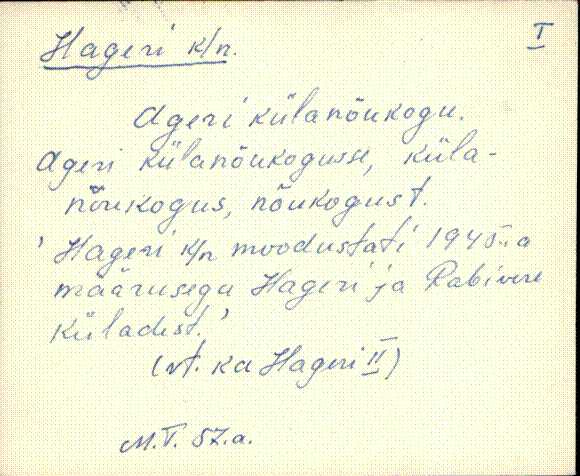 Hageri k/n.
I
Ageri külanõukogu.
Ageri külanõukogusse, küla-
nõukogus, nõukogust.
' Hageri k/n moodustati 1945. a
määrusega Hageri ja Rabivere
küladest.'
(vt. ka Hageri II)
M.T. 57.a.